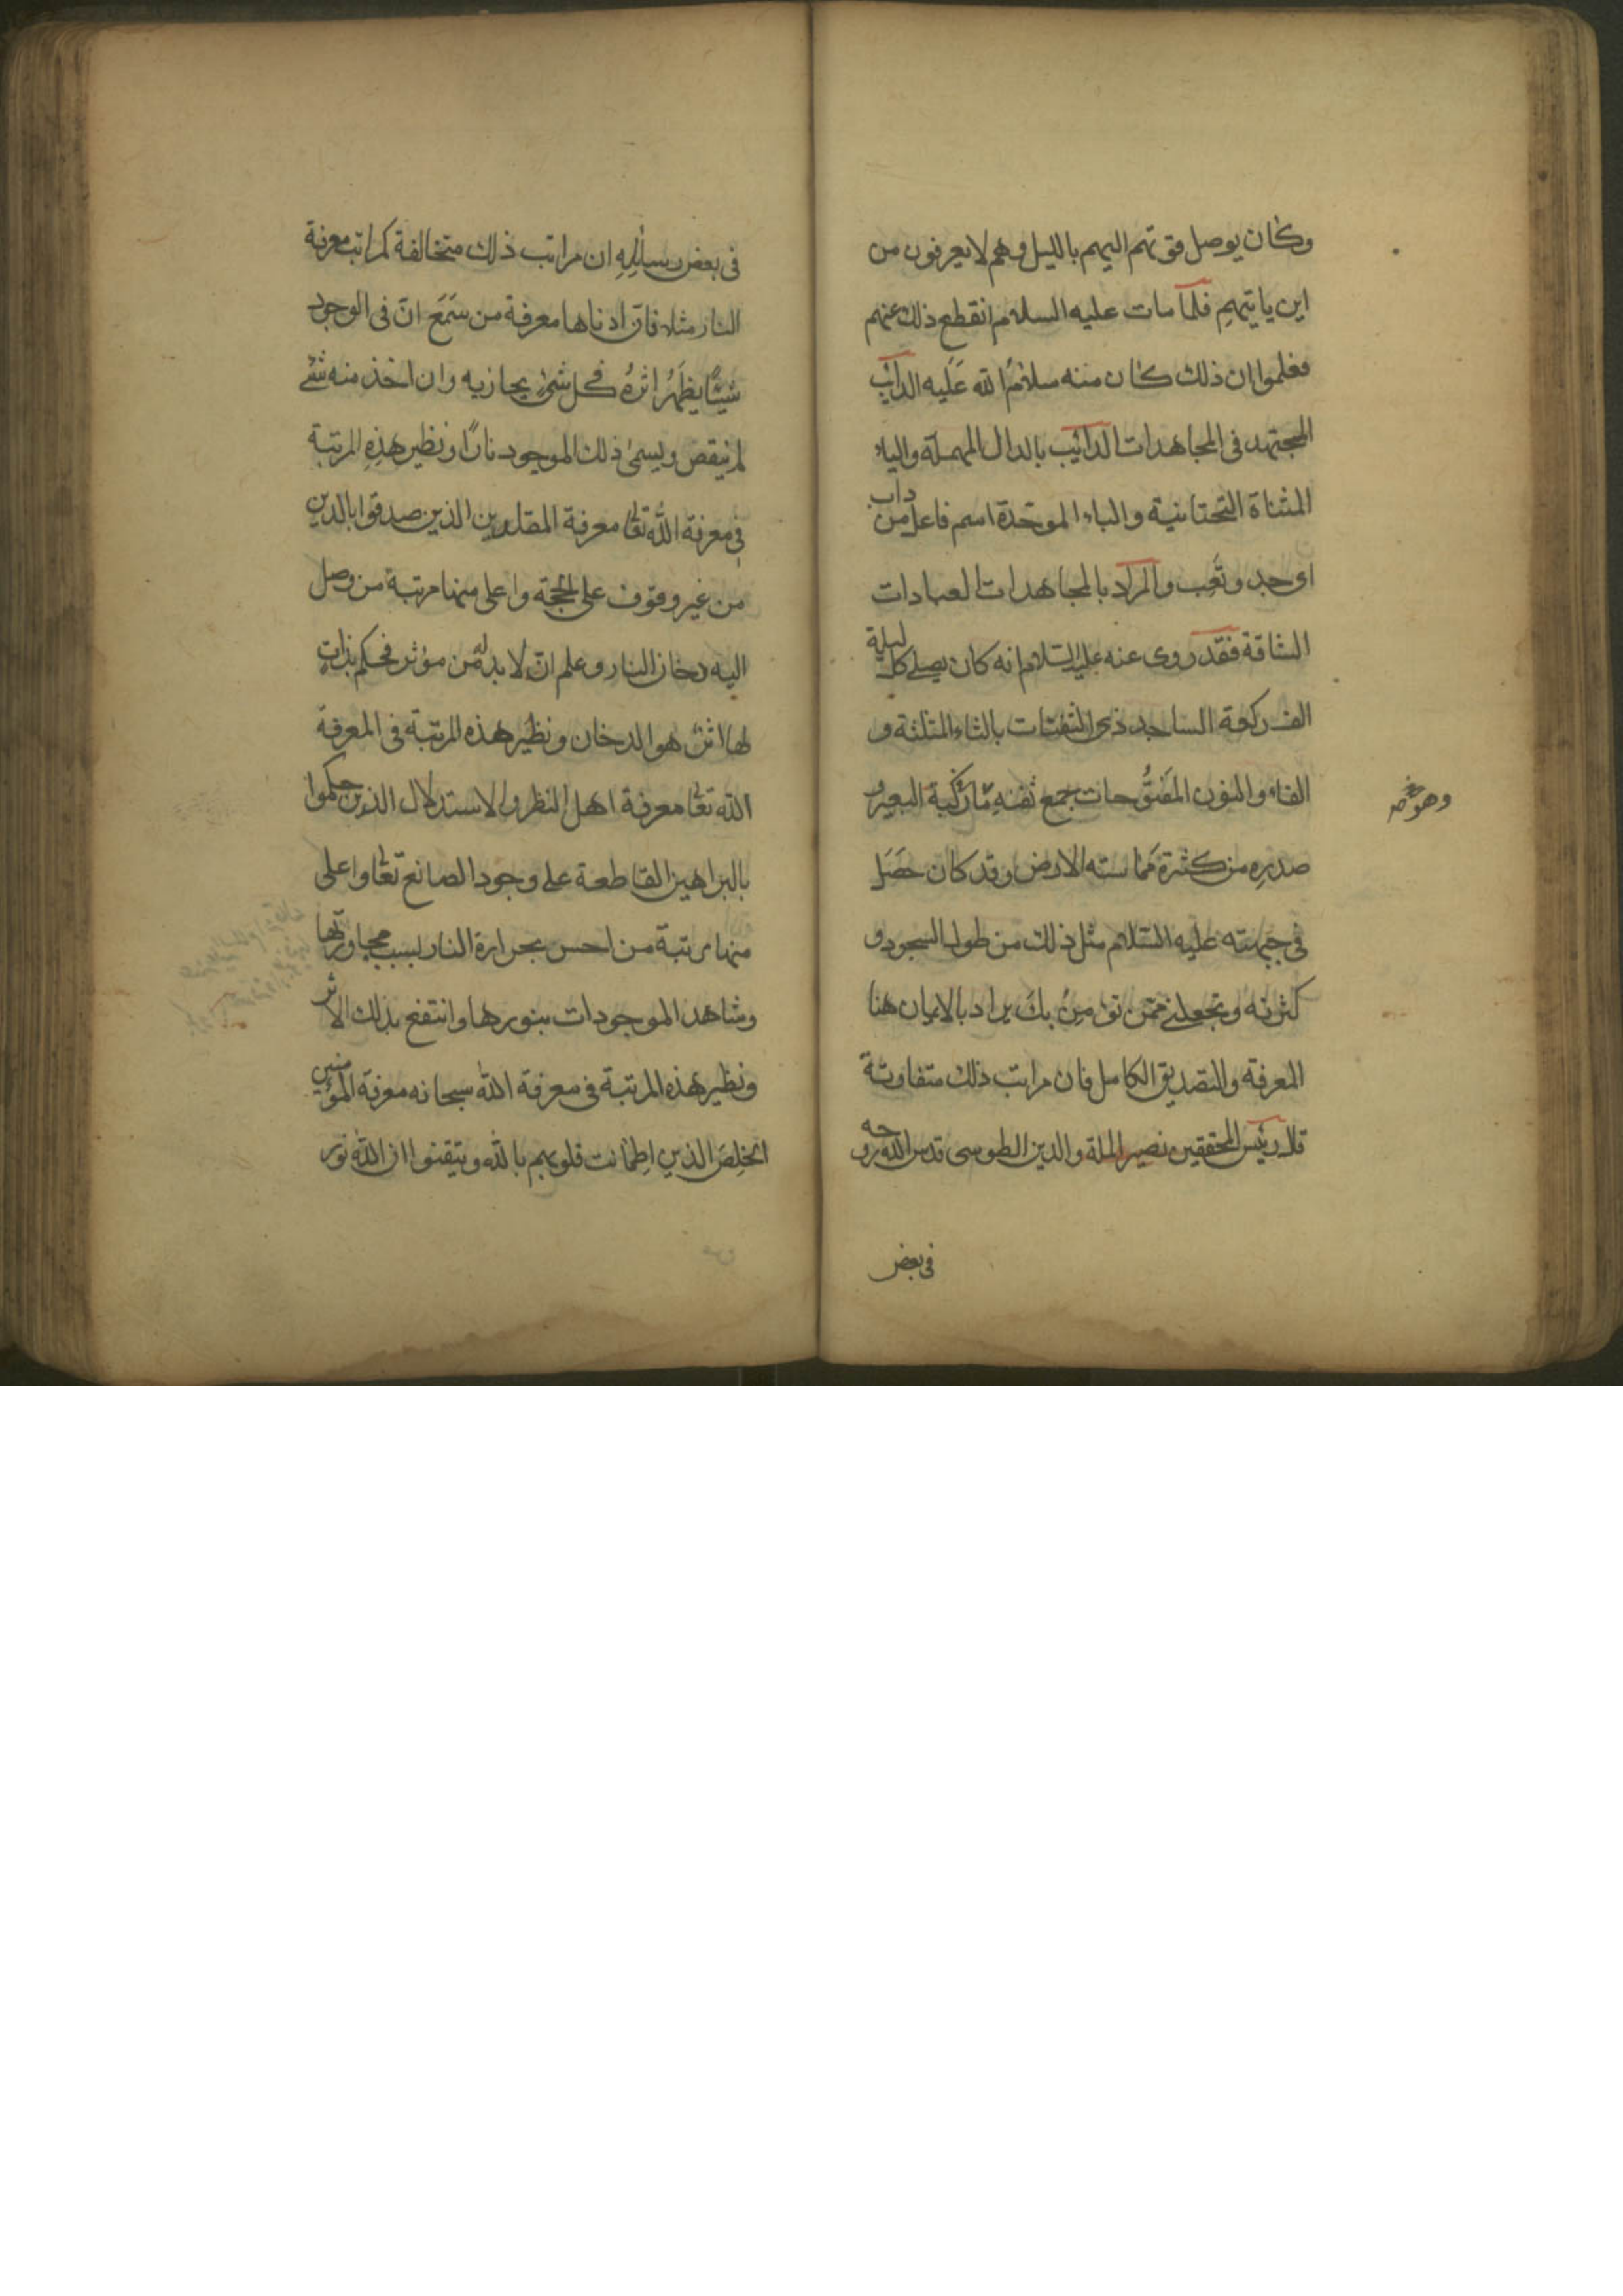 وكان يوصل قوتهم اليهم بالليل وهم لا يعرفون من
اين ياتيهم فلما مات عليه السلام انقطع ذلك عنهم
فعلموا ان ذلك كان منه سلام الله عليه الدائب
المجتهد فى المجاهدات الدائب بالدال المهملة والياء
المثناة التحتانية والباء الموحدة اسم فاعل من داب
اى جد وتعب والمراد بالمجاهدات العبادات
الشاقة فقد روى عنه عليه السلام انه كان يصلى كل ليلة
الف ركعة الساجد ذى الثفنات بالثاء المثلثة و
الفاء والنون المفتوحات جمع ثفنه ركبة البعير و
وهو
صدره من كثرة مماسته الارض وقد كان حصل
فى جبهته عليه السلام مثل ذلك من طول السجود و
كثرته وتجعلنى ممن تؤمن بك يراد بالايمان هنا
المعرفة والتصديق الكامل فان مراتب ذلك متفاوتة
قال رئيس المحققين نصير الملة والدين الطوسى قدس الله روحه
فى بعض
فى بعض رسائله ان مراتب ذلك متخالفة كمراتب معرفة
النار مثلا فان ادناها معرفة من سمع ان فى الوجود
شيئا يظهر اثره فى كل شئ يحاذيه وان اخذ منه شئ
لم ينقص ويسمى ذلك الموجود نارا ونظير هذه المرتبة
فى معرفة الله تعا معرفة المقلدين الذين صدقوا بالدين
من غير وقوف على الحجة واعلى منها مرتبة من وصل
اليه دخان النار وعلم ان لا بد له من مؤثر فحكم بذات
لها اثر هو الدخان ونظير هذه المرتبة فى المعرفة
الله تعا معرفة اهل النظر والاستدلال الذين حكموا
بالبراهين القاطعة على وجود الصانع تعا واعلى
منها مرتبة من احس بحرارة النار بسبب مجاورتها
وشاهد الموجودات بنورها وانتفع بذلك الاثر
ونظير هذه المرتبة فى معرفة الله سبحانه معرفة المؤمنين
الخلص الذين اطمانت قلوبهم بالله وتيقنوا ان الله نور